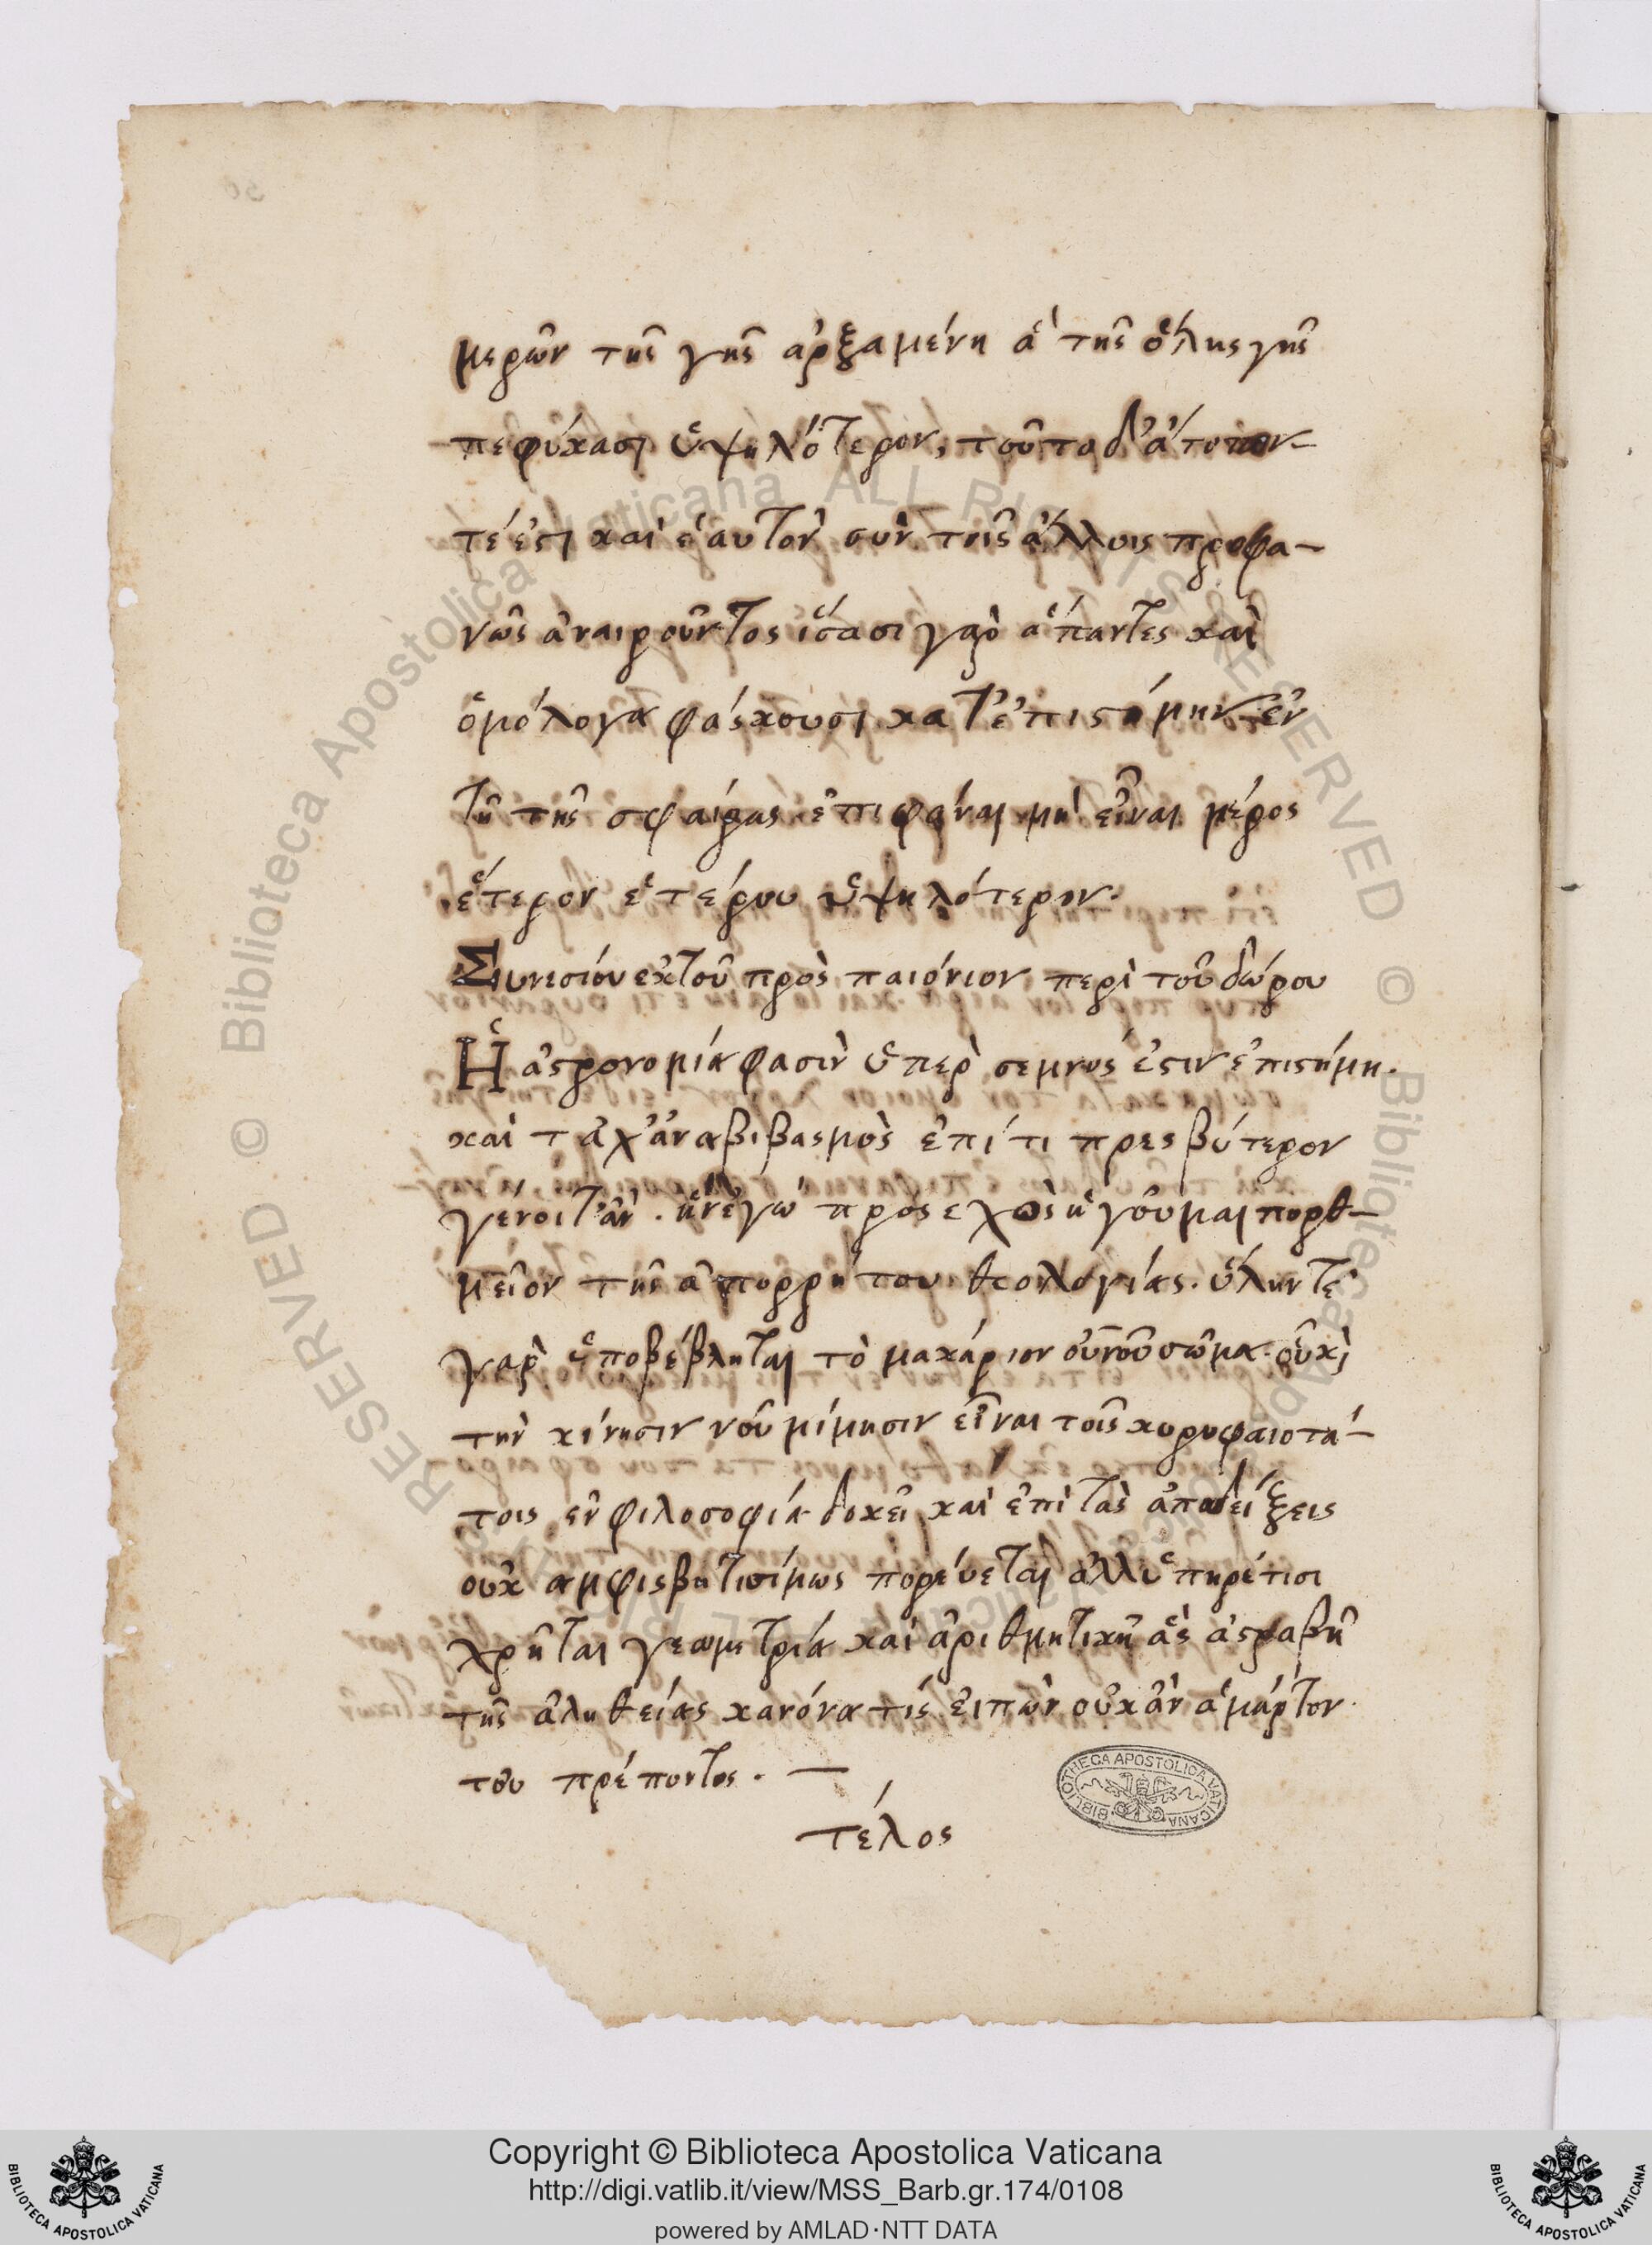 μερῶν τῆς γῆς ἀρξαμένη ἃ τῆς ὅλης γῆς
πεφύκασι ὑψηλότερον, τοῦτο δ' ἄτοπον
τέ ἐστι καὶ ἑαυτὸν σὺν τοῖς ἄλλοις προφα-
νῶς ἀναιροῦντος ἴσασι γὰρ ἅπαντες καὶ
ὁμόλογα φάσκουσι κατ' ἐπιστήμην ἐν
τῇ τῆς σφαίρας ἐπιφάναι μὴ εἶναι μέρος
ἕτερον ἑτέρου ὑψηλότερον.
Συνεσίου ἐκ τοῦ πρὸς παιόνιον περὶ τοῦ δώρου
Ἡ ἀστρονομία φασὶν ὑπὲρ σεμνός ἐστιν ἐπιστήμη.
καὶ τάχ' ἀναβιβασμὸς ἐπί τι πρεσβύτερον
γένοιτ' ἄν. ἣν ἐγὼ προσεχῶς ἡγοῦμαι πορθ-
μεῖον τῆς ἀπορρήτου θεολογίας. ὕλην τε
γὰρ ὑποβέβληται τὸ μακάριον οὐνοῦ σῶμα. οὗ καὶ
τὴν κίνησιν νοῦ μίμησιν εἶναι τοῖς κορυφαιοτά-
τοις ἐν φιλοσοφία δοκεῖ καὶ ἐπὶ τὰς ἀποδείξεις
οὐκ ἀμφισβητισίμως πορεύεται ἀλλ' ὑπηρέτισι
χρῆται γεωμετρία καὶ ἀριθμητικῇ ἃς ἀστραβῆ
τῆς ἀληθείας κανόνα τίς εἰπὼν οὐκ ἂν ἁμάρτοι
του πρέποντος. —
τέλος
BIBLIOTHECA APOSTOLICA VATICANA
© Biblioteca Apostolica Vaticana ALL RIGHTS RESERVED © Biblioteca Apostolica Vaticana ALL RIGHTS RESERVED
Copyright © Biblioteca Apostolica Vaticana
http://digi.vatlib.it/view/MSS_Barb.gr.174/0108
powered by AMLAD·NTT DATA
BIBLIOTECA APOSTOLICA VATICANA
BIBLIOTECA APOSTOLICA VATICANA